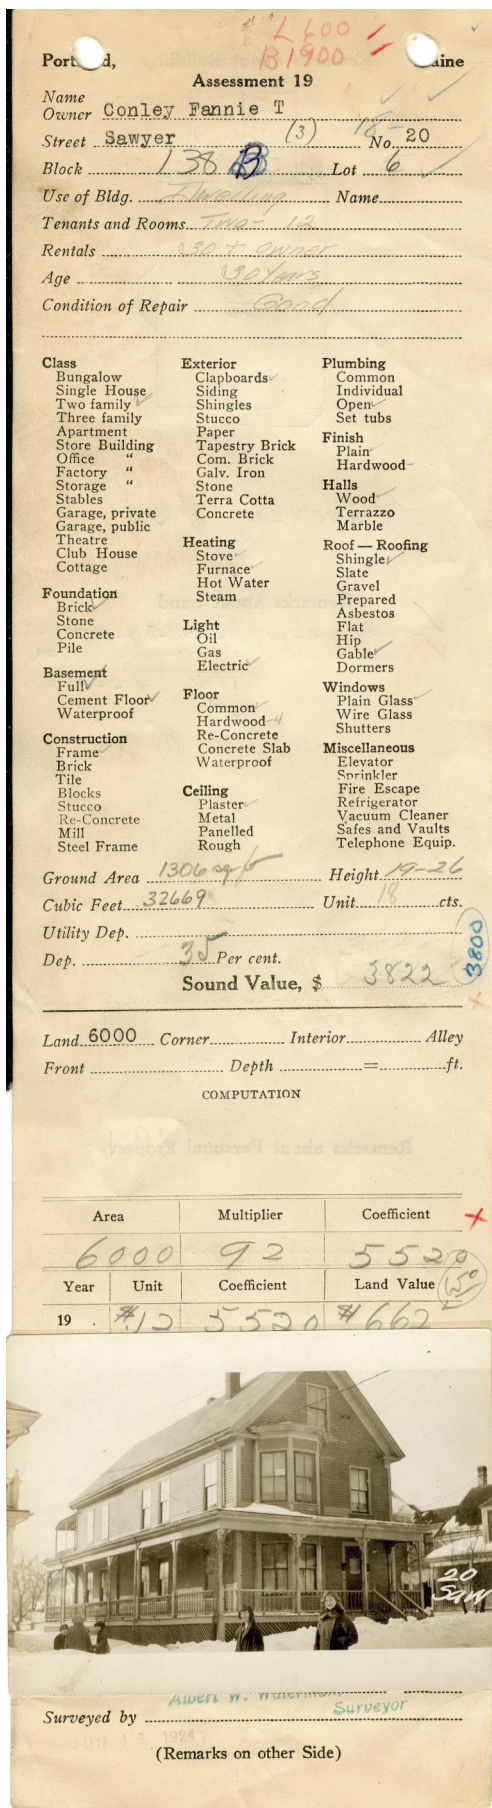 L600
B1900
Portland, Maine
Assessment 19
Name
Owner Conley Fannie T
Street Sawyer (3) 18- No. 20
Block 138 B Lot 6
Use of Bldg. Dwelling Name
Tenants and Rooms Two- 12
Rentals $30 + owner
Age 30 Years
Condition of Repair Good
Class
Bungalow
Single House
Two family
Three family
Apartment
Store Building
Office “
Factory “
Storage “
Stables
Garage, private
Garage, public
Theatre
Club House
Cottage
Foundation
Brick
Stone
Concrete
Pile
Basement
Full
Cement Floor
Waterproof
Construction
Frame
Brick
Tile
Blocks
Stucco
Re-Concrete
Mill
Steel Frame
Exterior
Clapboards
Siding
Shingles
Stucco
Paper
Tapestry Brick
Com. Brick
Galv. Iron
Stone
Terra Cotta
Concrete
Heating
Stove
Furnace
Hot Water
Steam
Light
Oil
Gas
Electric
Floor
Common
Hardwood-4
Re-Concrete
Concrete Slab
Waterproof
Ceiling
Plaster
Metal
Panelled
Rough
Plumbing
Common
Individual
Open
Set tubs
Finish
Plain
Hardwood
Halls
Wood
Terrazzo
Marble
Roof — Roofing
Shingle
Slate
Gravel
Prepared
Asbestos
Flat
Hip
Gable
Dormers
Windows
Plain Glass
Wire Glass
Shutters
Miscellaneous
Elevator
Sprinkler
Fire Escape
Refrigerator
Vacuum Cleaner
Safes and Vaults
Telephone Equip.
Ground Area 1306 sq ft Height 19-26
Cubic Feet 32669 Unit 18 cts.
Utility Dep.
Dep. 35 Per cent.
Sound Value, $ 3822 3800
Land 6000 Corner Interior Alley
Front Depth = ft.
COMPUTATION
Remarks about Personal Property
Area Multiplier Coefficient
6000 92 5520
Year Unit Coefficient Land Value
19 . $.12 5520 $662
20
Saw
Albert W. Waterman
Surveyor
Surveyed by
JUN 13 1924
(Remarks on other Side)